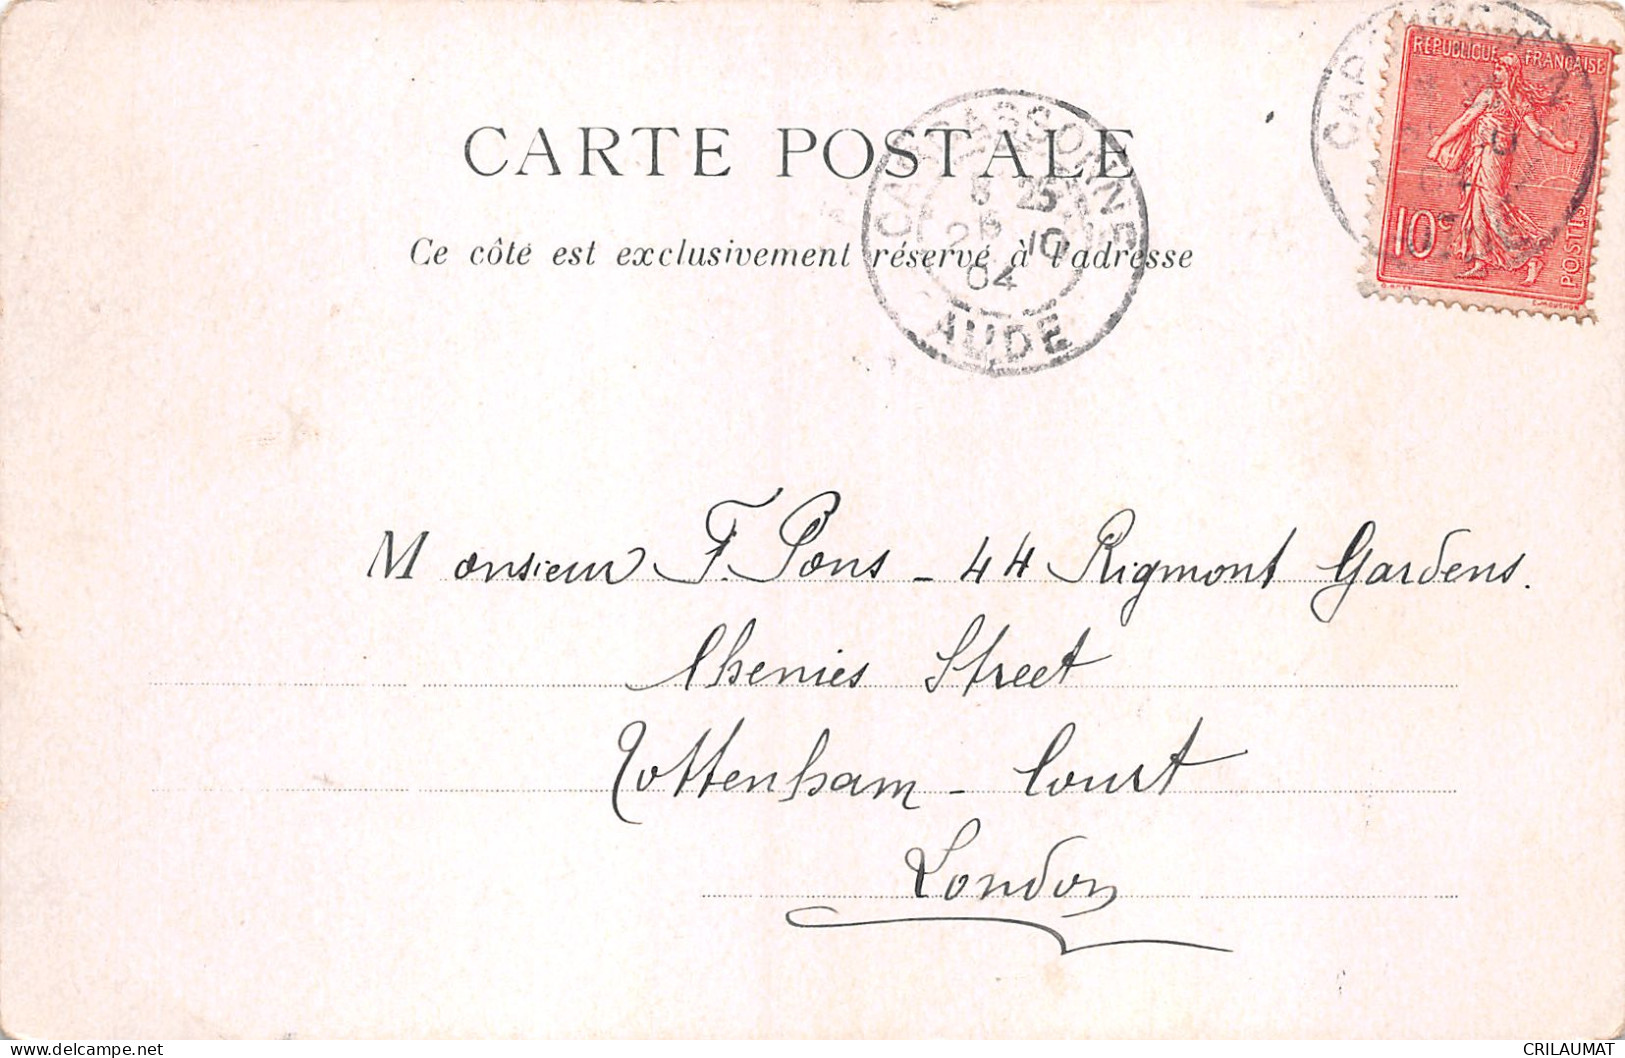 CARTE POSTALE
Ce côté est exclusivement réservé à l'adresse
CARCASSONNE
8 25
10
04
AUDE
REPUBLIQUE FRANÇAISE
10c
POSTES
Monsieur F. Pons - 44 Rigmont Gardens.
Chenies Street
Tottenham - Court
London
delcampe.net
CRILAUMAT